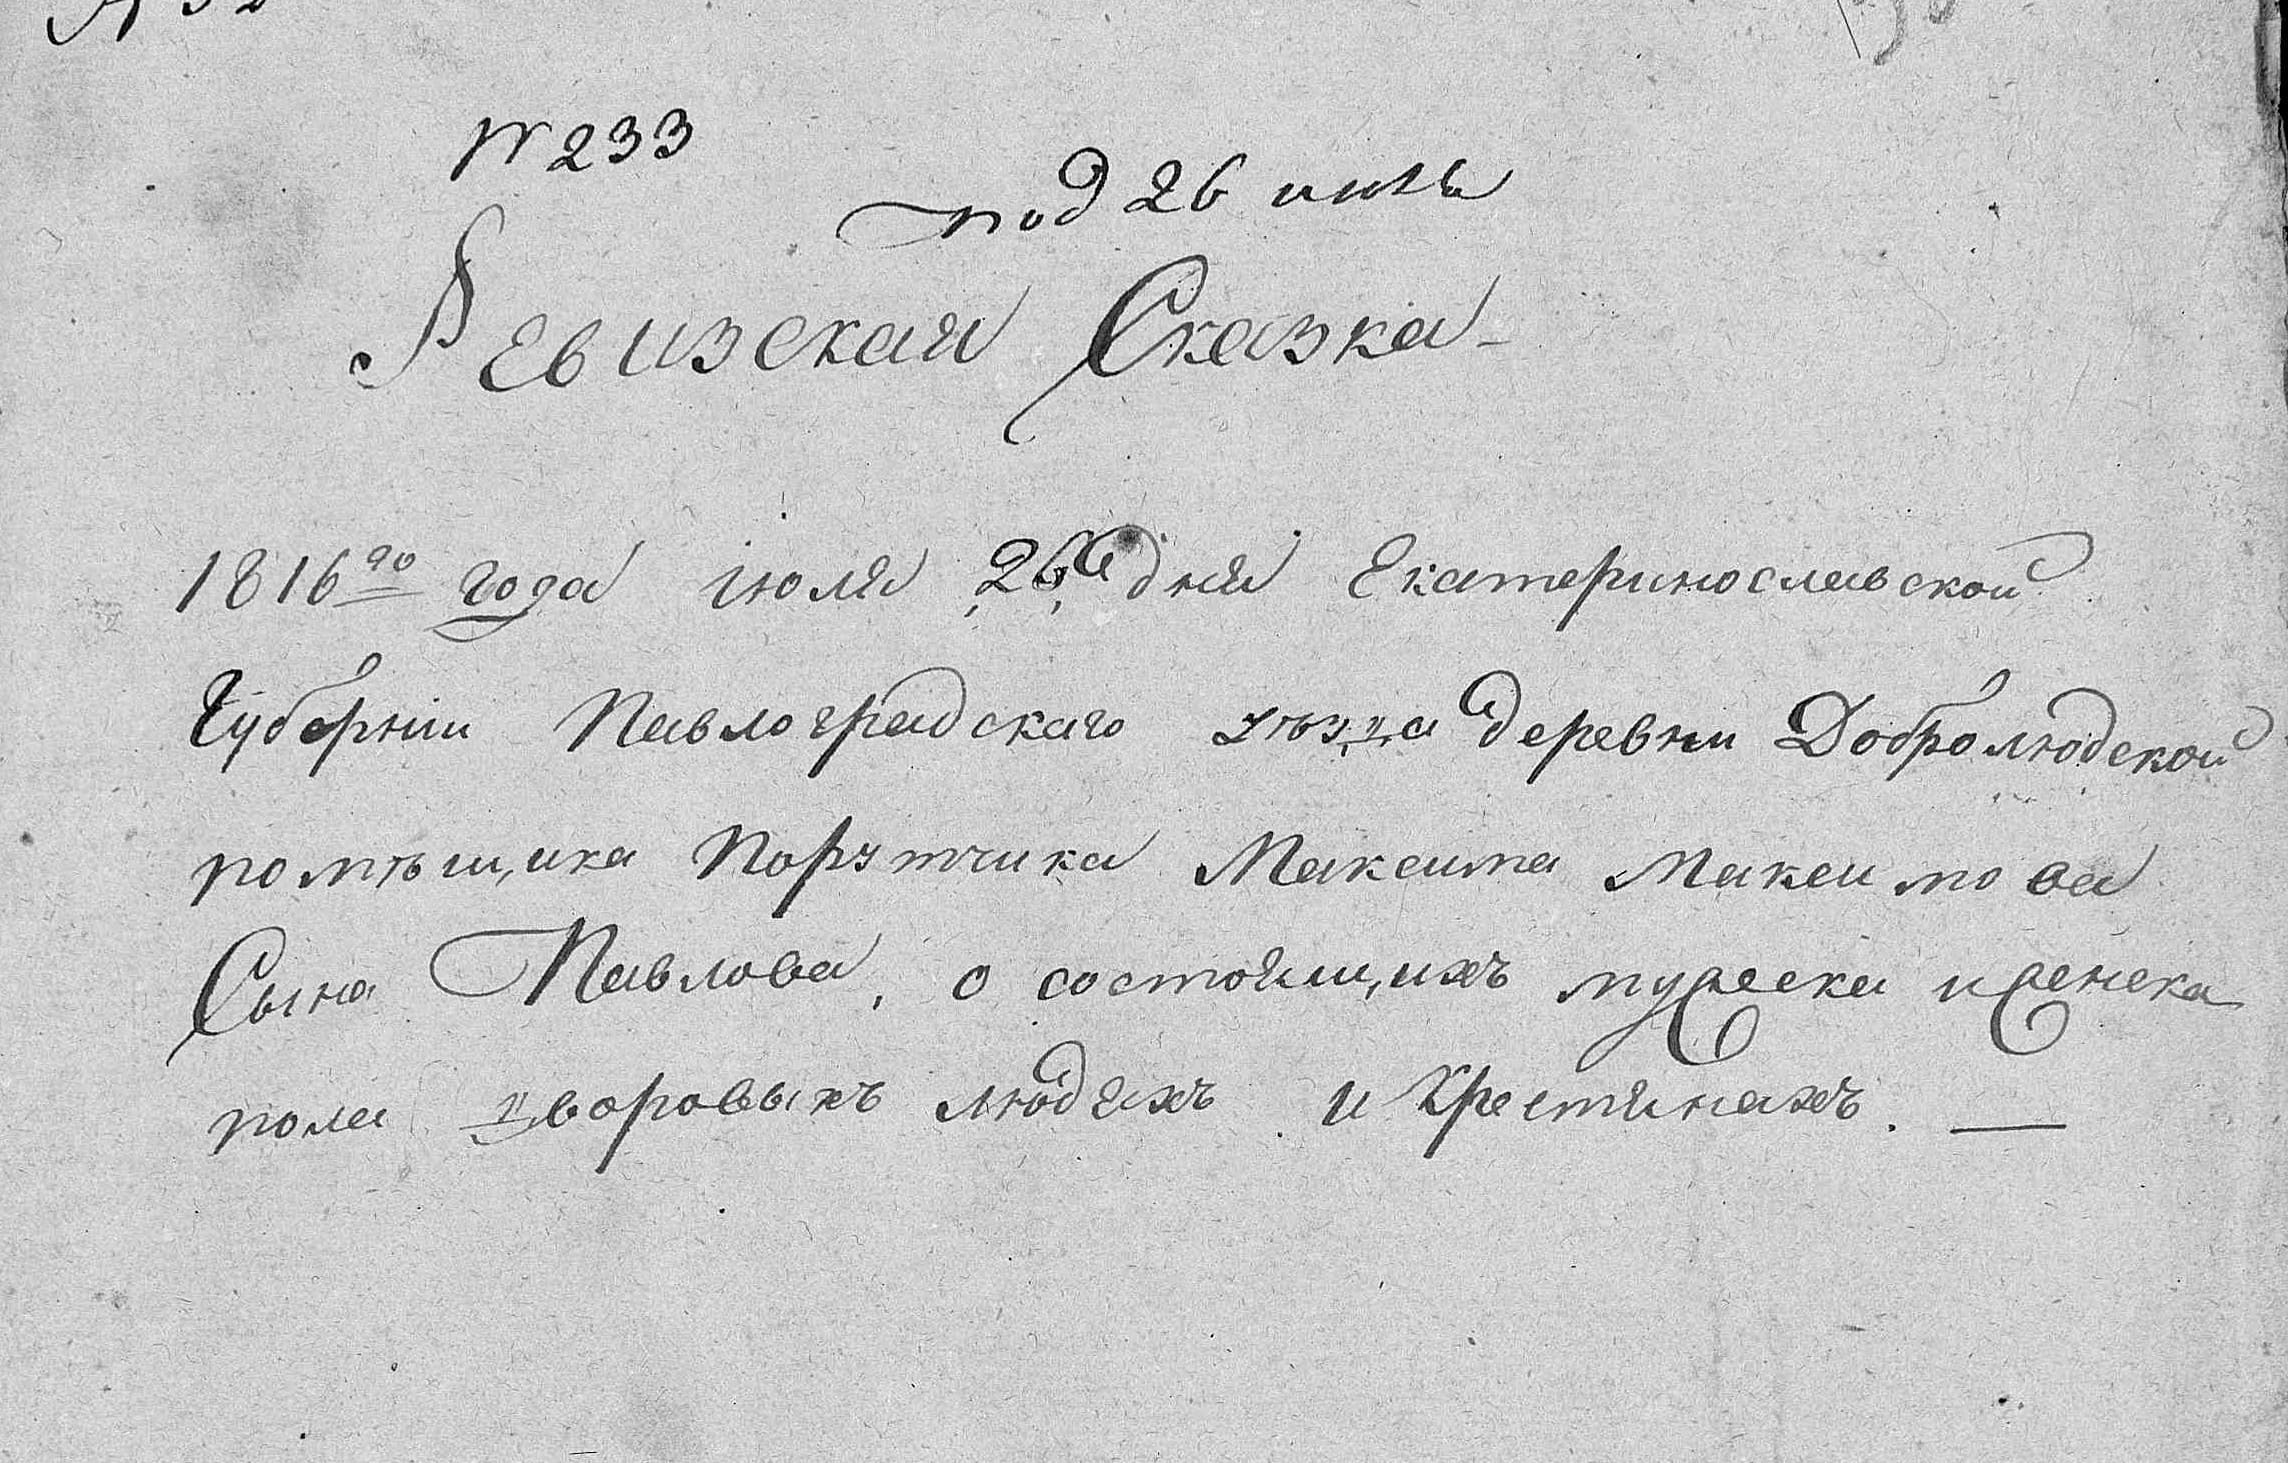 № 233
под 26 июль
Ревизская Сказка
1816го года июля 26 дня Екатеринославской
Губернии Павлоградскаго уѣзда деревни Добролюдской
помѣщика Порутчика Максима Максимова
Сына Павлова, о состоящихъ мужеска и женска
пола дворовыхъ людяхъ и Крестянахъ. —